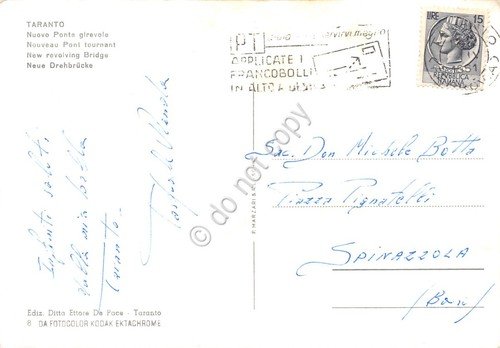 TARANTO
Nuovo Ponte girevole
Nouveau Pont tournant
New revolving Bridge
Neue Drehbrücke
PT
APPLICATE I
FRANCOBOLLI
IN ALTO A DES
LIRE 15
REPUBBLICA
ITALIANA
Infiniti saluti
dalla mia bella
Taranto.
Sac. Don Michele Botta
Piazza Pignatelli
SPINAZZOLA
(Bari)
do not copy
Ediz. Ditta Ettore De Pace - Taranto
8 DA FOTOCOLOR KODAK EKTACHROME